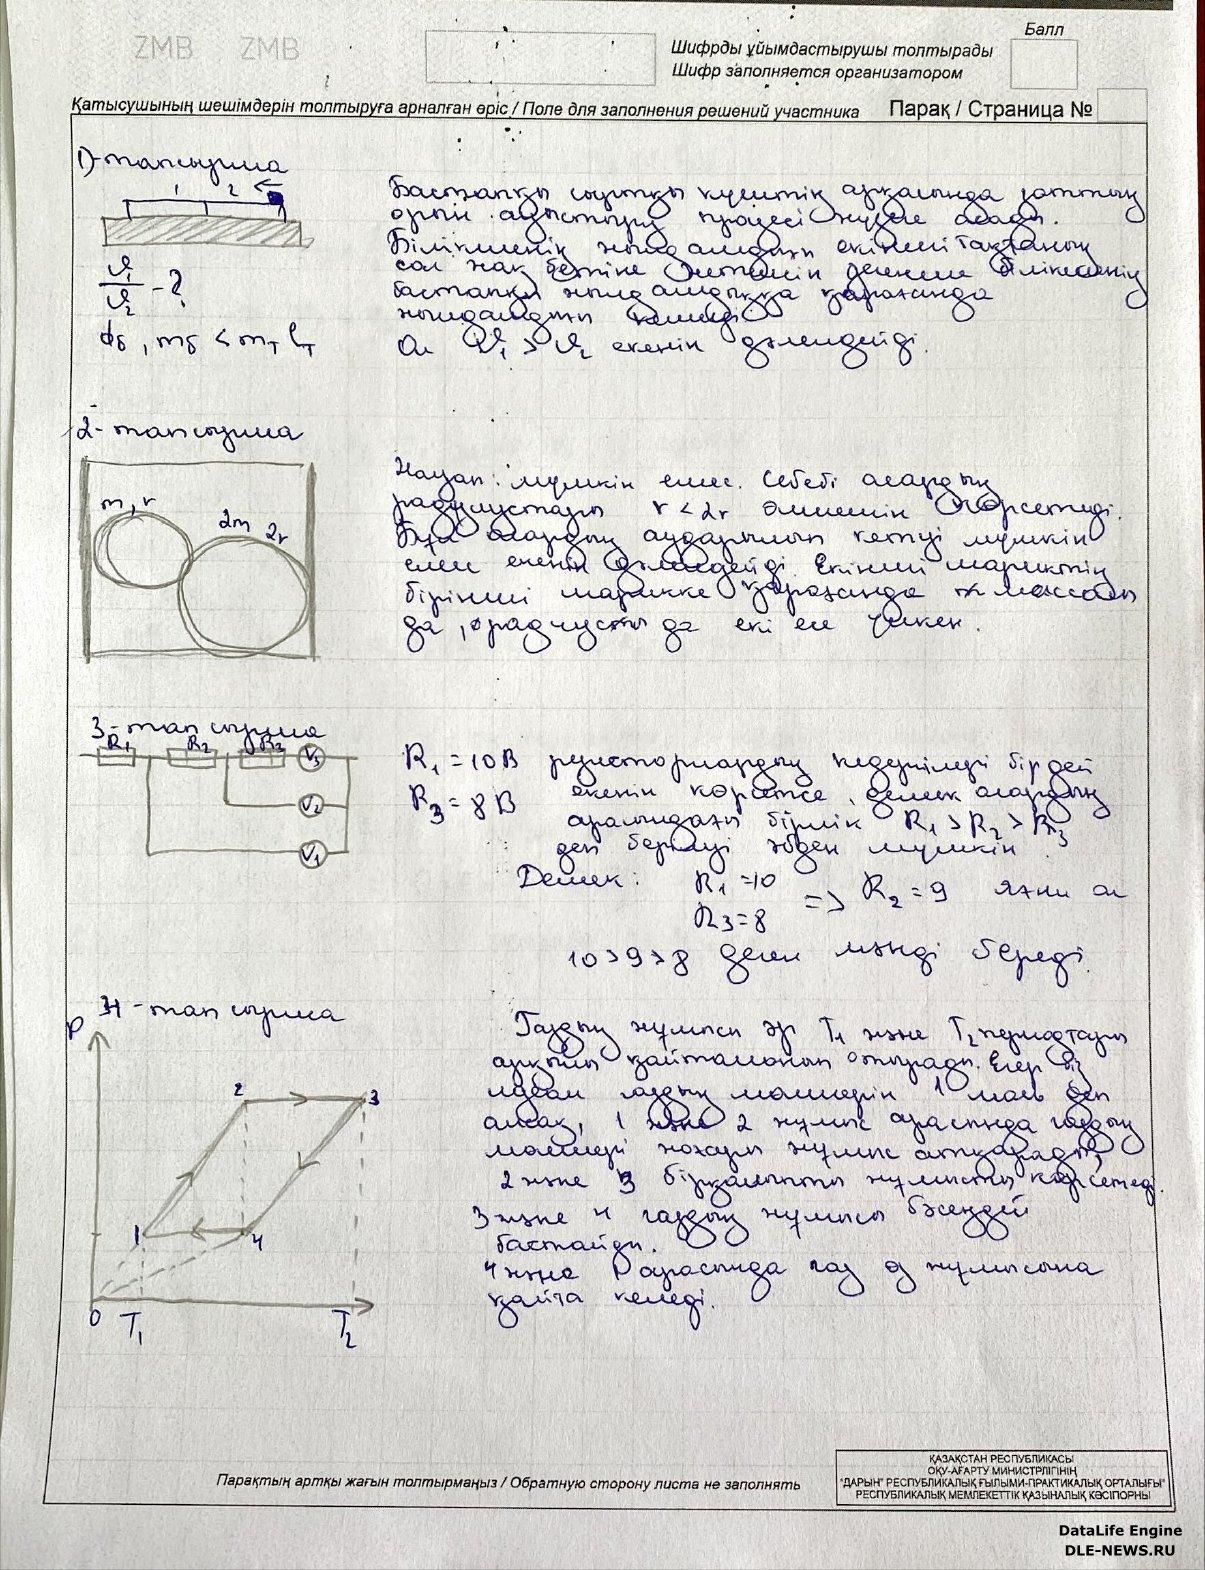 ZMB ZMB
Балл
Шифрды ұйымдастырушы толтырады
Шифр заполняется организатором
Қатысушының шешімдерін толтыруға арналған өріс / Поле для заполнения решений участника Парақ / Страница №
1)-тапсырма
1 2
Бастапқы сыртқы күштің арқасында заттың
орын ауыстыру процесі жүзеге асады.
екінші тақтаның
сол жақ бетіне
бастапқы жылдамдыққа қарағанда
жылдамдығы
ϑ₁/ϑ₂ - ?
Ол ϑ₁ > ϑ₂ екенін дәлелдейді.
2-тапсырма
m, r
2m
2r
Жауап: мүмкін емес. Себебі олардың
радиустары r < 2r көрсетеді.
Бұл олардың аударылып кетуі мүмкін
емес екенін дәлелдейді. Екінші шариктің
бірінші шарикке қарағанда массасы
да, радиусты да екі есе үлкен.
3-тапсырма
R₁ R₂ R₃ V₃
V₂
V₁
R₁ = 10 В резисторлардың кедергілері бірдей
R₃ = 8 В екенін көрсетсе, демек олардың
арасындағы бірлік R₁ > R₂ > R₃
деп берілуі әбден мүмкін.
Демек: R₁ = 10
R₃ = 8 => R₂ = 9 Яғни ол
10 > 9 > 8 деген мәнді береді.
4-тапсырма
P
2 3
1 4
0 T₁ T₂
Газдың жұмысы әр T₁ және T₂ периодтары
арқылы қайталанып отырады. Егер біз
идеал газдың мөлшерін 1 моль деп
алсақ, 1 және 2 жұмыс арасында газдың
мөлшері жоғары жұмыс атқарады,
2 және 3 бірқалыпты жұмысты көрсетеді.
3 және 4 газдың жұмысы бәсеңдей
бастайды.
4 және 1 арасында газ өз жұмысына
қайта келеді.
Парақтың артқы жағын толтырмаңыз / Обратную сторону листа не заполнять
ҚАЗАҚСТАН РЕСПУБЛИКАСЫ
ОҚУ-АҒАРТУ МИНИСТРЛІГІНІҢ
"ДАРЫН" РЕСПУБЛИКАЛЫҚ ҒЫЛЫМИ-ПРАКТИКАЛЫҚ ОРТАЛЫҒЫ"
РЕСПУБЛИКАЛЫҚ МЕМЛЕКЕТТІК ҚАЗЫНАЛЫҚ КӘСІПОРНЫ
DataLife Engine
DLE-NEWS.RU